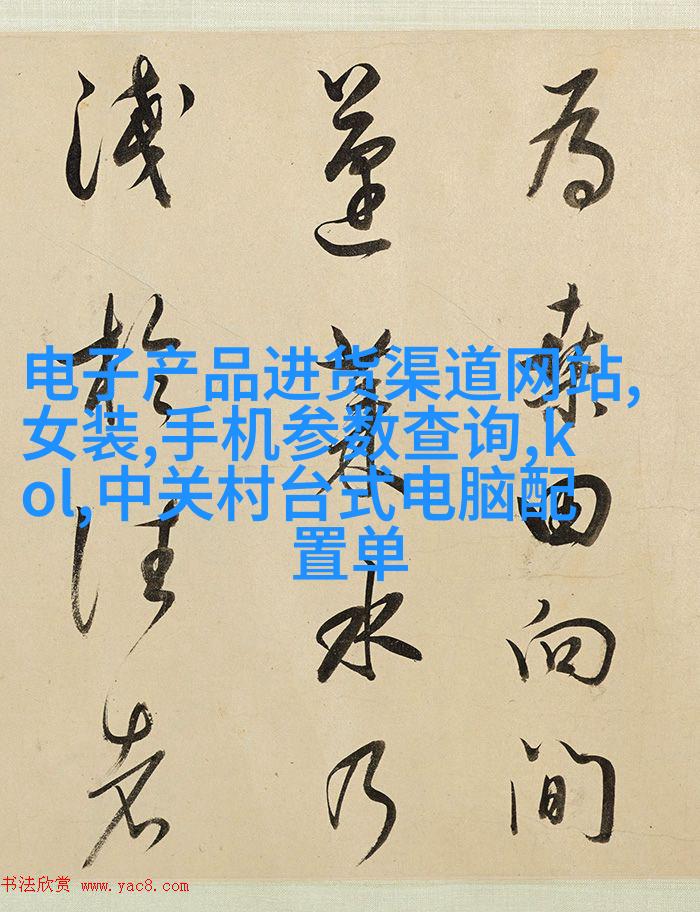 為桑田向間
蓬萊水乃
淺於往者
电子产品进货渠道网站,
女装,手机参数查询,k
ol,中关村台式电脑配
置单
书法欣赏 www.yac8.com